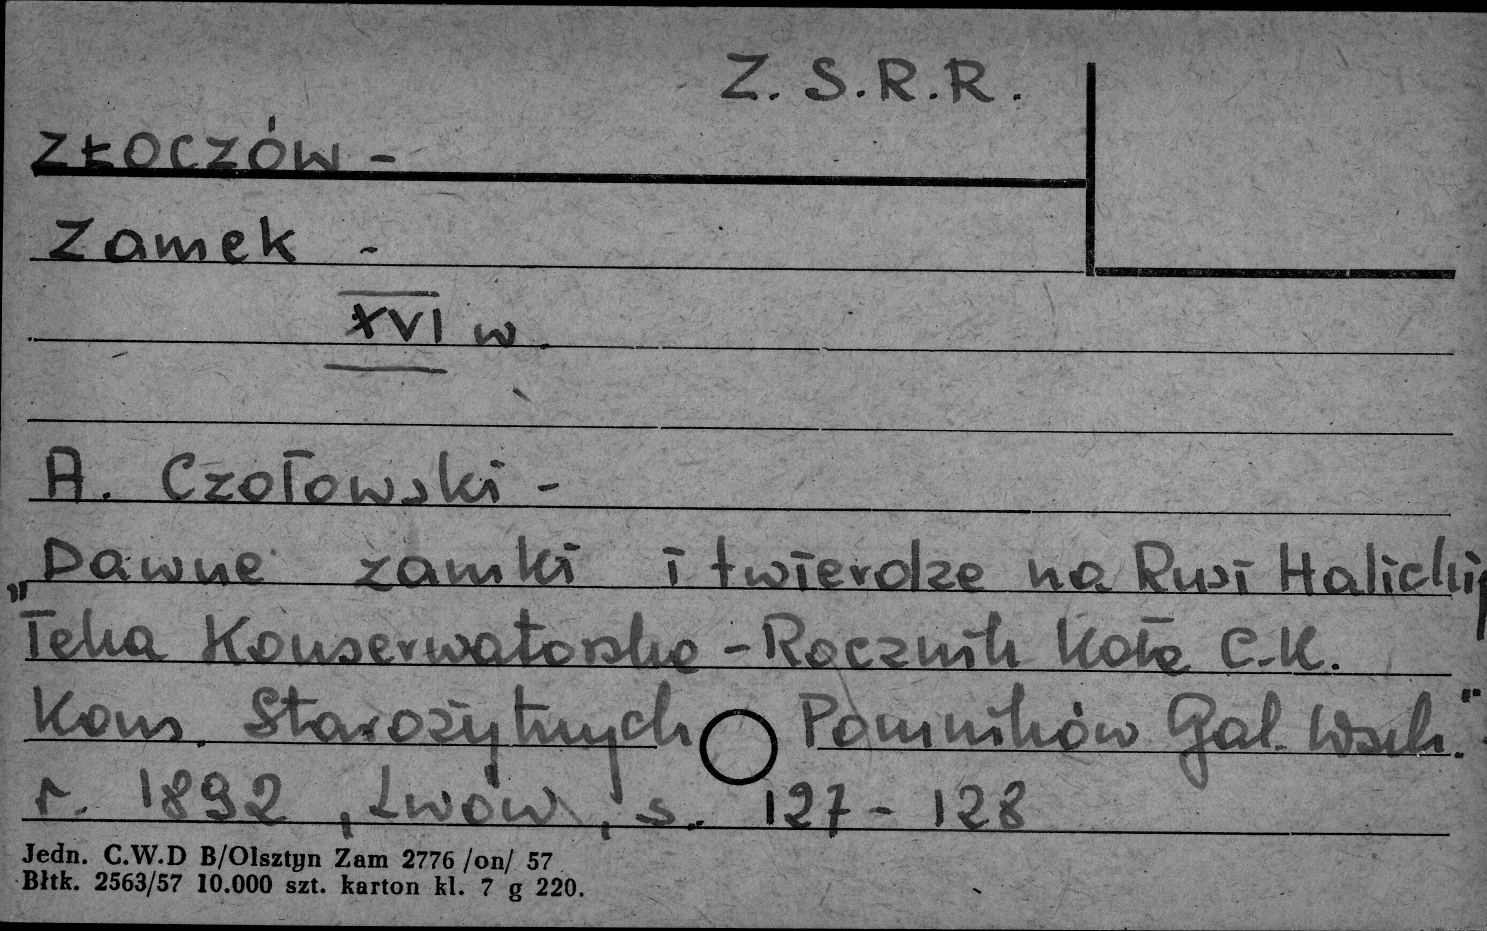 Z.S.R.R.
ZŁOCZÓW -
Zamek -
XVI w.
A. Czołowski -
"Dawne zamki i twierdze na Rusi Halickiej
Teka Konserwatorska - Rocznik Koła C.K.
Kons. Starożytnych Pomników Gal. Wsch."
r. 1892, Lwów, s. 127 - 128
Jedn. C.W.D B/Olsztyn Zam 2776 /on/ 57
Błtk. 2563/57 10.000 szt. karton kl. 7 g 220.